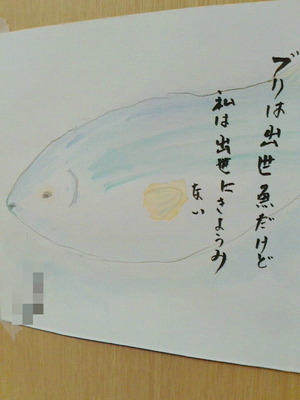 ブリは出世魚だけど
私は出世にきょうみ
ない